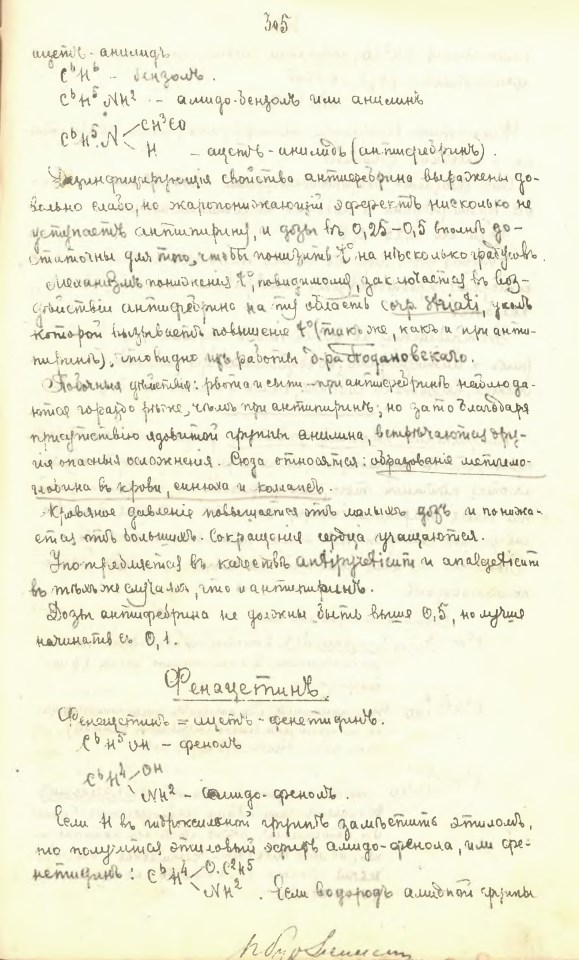 305
ацетъ-анилидъ
C⁶H⁶ – бензолъ.
C⁶H⁵NH² – амидо-бензолъ или анилинъ
CH³CO
C⁶H⁵.N
H – ацетъ-анилидъ (антифебринъ).
Дезинфицирующія свойства антифебрина выражены до-
вольно слабо, но жаропонижающій эффектъ нисколько не
уступаетъ антипирину, и дозы въ 0,25–0,5 вполнѣ до-
статочны для того, чтобы понизить t° на нѣсколько градусовъ.
Механизмъ пониженія t°, повидимому, заключается въ воз-
дѣйствіи антифебрина на ту область corp. striati, уколъ
которой вызываетъ повышеніе t° (также, какъ и при анти-
пиринѣ), что видно изъ работы д-ра Гоdановскаго.
Побочныя дѣйствія: рвота и сыпи – при антифебринѣ наблюда-
ются гораздо рѣже, чѣмъ при антипиринѣ, но зато благодаря
присутствію ядовитой группы анилина, встрѣчаются дру-
гія опасныя осложненія. Сюда относятся: образованіе метгемо-
глобина въ крови, синюха и коллапсъ.
Кровяное давленіе повышается отъ малыхъ дозъ и понижа-
ется отъ большихъ. Сокращенія сердца учащаются.
Употребляется въ качествѣ antipyreticum и analgeticum
въ тѣхъ же случаяхъ, что и антипиринъ.
Дозы антифебрина не должны быть выше 0,5, но лучше
начинать съ 0,1.
Фенацетинъ.
Фенацетинъ = ацетъ-фенетидинъ.
C⁶H⁵OH – фенолъ
OH
C⁶H⁴
NH² – амидо-фенолъ.
Если H въ гидроксильной группѣ замѣстить этиломъ,
то получится этиловый эфиръ амидо-фенола, или фе-
нетидинъ: C⁶H⁴ O.C²H⁵
NH². Если водородъ амидной группы